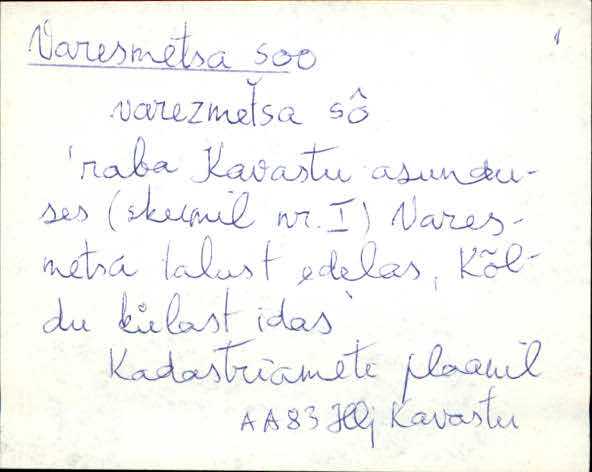 Varesmetsa soo
varezmeťsa sô
'raba Kavastu asundu-
ses (skeemil nr. I) Vares-
metsa talust edelas, Kõl-
du külast idas
Kadastriameti plaanil
AA83 HKj Kavastu